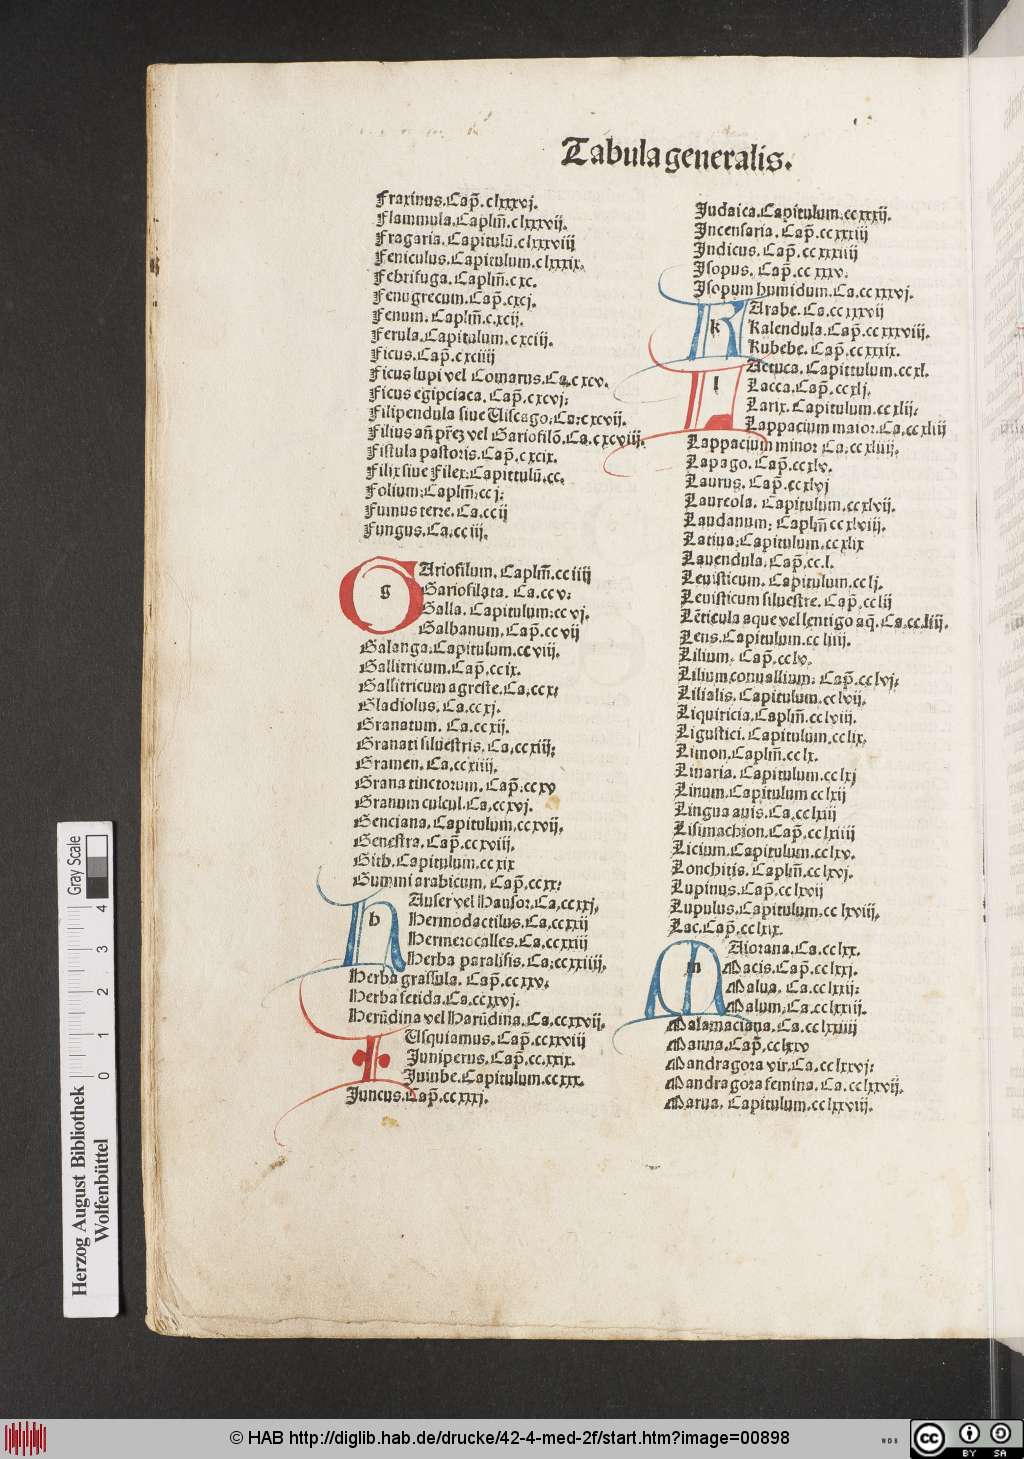 Tabula generalis.
Fraxinus. Cap̃. clxxxvj.
Flammula. Caplm̃. clxxxvij.
Fragaria. Capitulũ. clxxxviij
Feniculus. Capitulum. clxxxix.
Febrifuga. Caplm̃. cxc.
Fenugrecum. Cap̃. cxcj.
Fenum. Caplm̃. cxcij.
Ferula. Capitulum. cxciij.
Ficus. Cap̃. cxciiij
Ficus lupi vel Comarus. Ca. cxcv.
Ficus egipciaca. Cap̃. cxcvj.
Filipendula siue Viscago. Ca. cxcvij.
Filius añ pr̃ez vel Gariofilõ. Ca. cxcviij.
Fistula pastoris. Cap̃. cxcix.
Filix siue Filex. Capittulũ. cc.
Folium. Caplm̃. ccj.
Fumus terre. Ca. ccij
Fungus. Ca. cciij.
G Ariofilum. Caplm̃. cciiij
Gariofilata. Ca. ccv.
Galla. Capitulum. ccvj.
Galbanum. Cap̃. ccvij
Galanga. Capitulum. ccviij.
Gallitricum. Cap̃. ccix.
Gallitricum agreste. Ca. ccx.
Gladiolus. Ca. ccxj.
Granatum. Ca. ccxij.
Granati siluestris. Ca. ccxiij.
Gramen. Ca. ccxiiij.
Grana tinctorum. Cap̃. ccxv
Granum culcul. Ca. ccxvj.
Genciana. Capitulum. ccxvij.
Genestra. Cap̃. ccxviij.
Gith. Capitulum. ccxix
Gummi arabicum. Cap̃. ccxx.
H Auser vel Hausor. Ca. ccxxj.
Hermodactilus. Ca. ccxxij
Hermerocalles. Ca. ccxxiij
Herba paralisis. Ca. ccxxiiij.
Herba grassula. Cap̃. ccxxv.
Herba fetida. Ca. ccxxvj.
Herũdina vel Harũdina. Ca. ccxxvij.
I Usquiamus. Cap̃. ccxxviij
Juniperus. Cap̃. ccxxix.
Juiube. Capitulum. ccxxx.
Juncus. Cap̃. ccxxxj.
Judaica. Capitulum. ccxxxij.
Incensaria. Cap̃. ccxxxiij
Indicus. Cap̃. ccxxxiiij
Isopus. Cap̃. ccxxxv.
Isopum humidum. Ca. ccxxxvj.
K Arabe. Ca. ccxxxvij
Kalendula. Cap̃. ccxxxviij.
Kubebe. Cap̃. ccxxxix.
L Actuca. Capittulum. ccxl.
Lacca. Cap̃. ccxlj.
Larix. Capitulum. ccxlij.
Lappacium maior. Ca. ccxliij
Lappacium minor. Ca. ccxliiij.
Lapago. Cap̃. ccxlv.
Laurus. Cap̃. ccxlvj
Laureola. Capitulum. ccxlvij.
Laudanum. Caplm̃ ccxlviij.
Latiua. Capitulum. ccxlix
Lauendula. Cap̃. cc.l.
Leuisticum. Capitulum. cclj.
Leuisticum siluestre. Cap̃. cclij
Lẽticula aque vel lentigo aq̃. Ca. cc.liij.
Lens. Capitulum. ccliiij.
Lilium. Cap̃. cclv.
Lilium conuallium. Cap̃. cclvj.
Lilialis. Capitulum. cclvij.
Liquiricia. Caplm̃. cclviij.
Ligustici. Capitulum. cclix.
Limon. Caplm̃. cclx.
Linaria. Capitulum. cclxj
Linum. Capitulum cclxij
Lingua auis. Ca. cclxiij
Lisimachion. Cap̃. cclxiiij
Licium. Capitulum. cclxv.
Lonchitis. Caplm̃. cclxvj.
Lupinus. Cap̃. cclxvij
Lupulus. Capitulum. cclxviij.
Lac. Cap̃. cclxix.
M Aiorana. Ca. cclxx.
Macis. Cap̃. cclxxj.
Malua. Ca. cclxxij.
Malum. Ca. cclxxiij.
Malamaciana. Ca. cclxxiiij
Manna. Cap̃. cclxxv
Mandragora vir. Ca. cclxxvj.
Mandragora femina. Ca. cclxxvij.
Marua. Capitulum. cclxxviij.
Gray Scale
0 1 2 3 4
Herzog August Bibliothek
Wolfenbüttel
© HAB http://diglib.hab.de/drucke/42-4-med-2f/start.htm?image=00898
WDB
cc BY SA